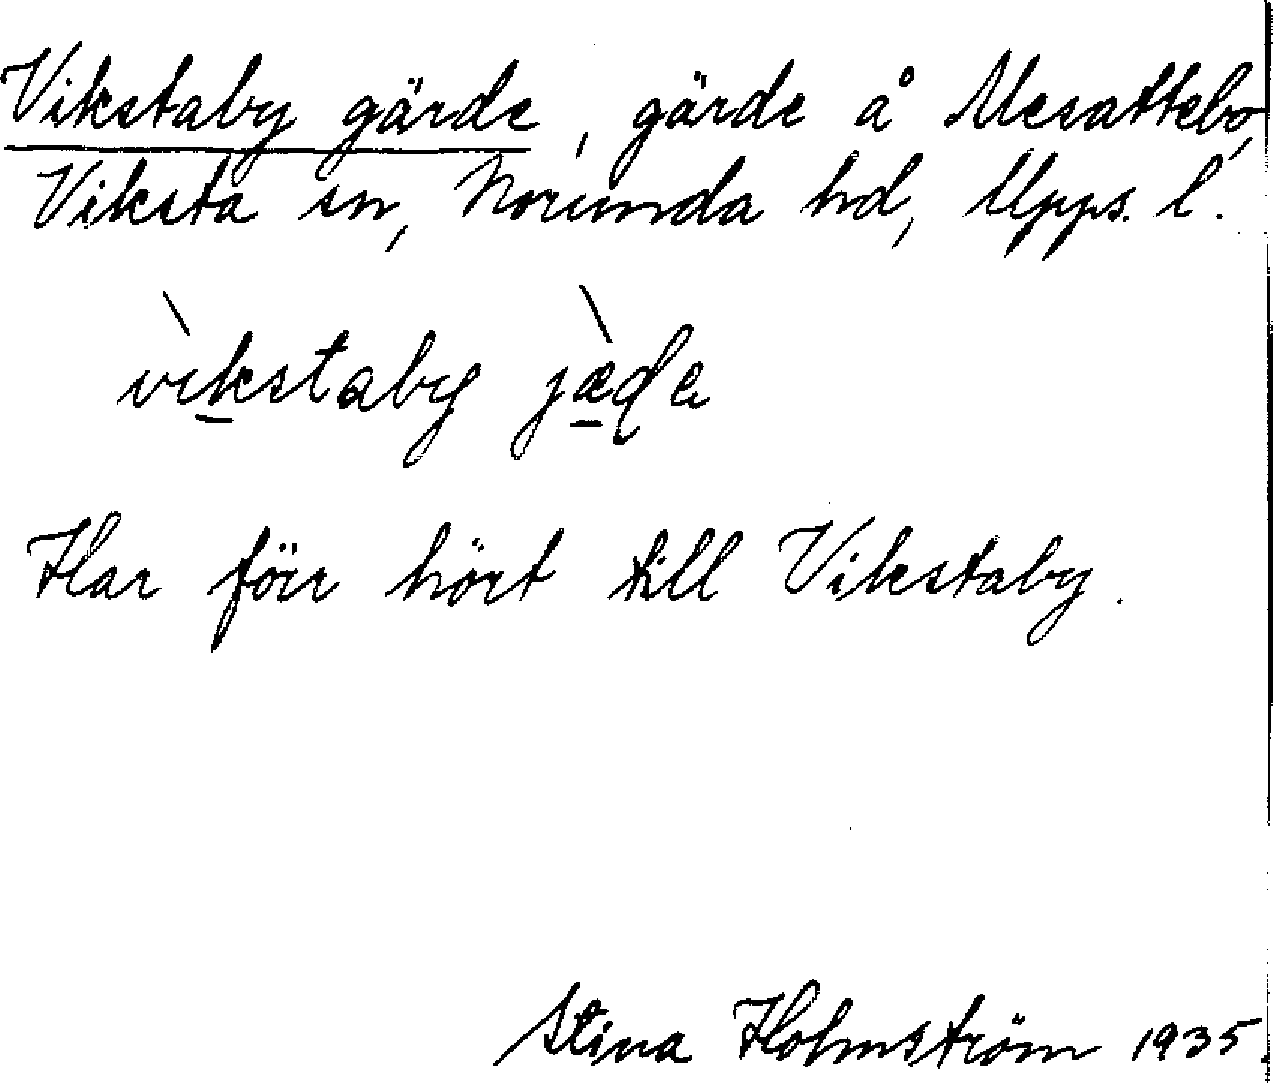 Vikstaby gärde, gärde å Mesattebo,
Viksta sn, Norunda hd, Upps. l.
vìkstaby jæ̀de
Har förr hört till Vikstaby.
Stina Holmström 1935.